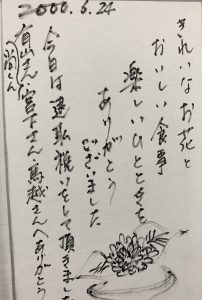 2000.6.24
きれいなお花と
おいしい食事
楽しいひとときを
ありがとう
ございました
今日は退職祝いをして頂きました
有山さん、宮下さん、馬越さんへありがとう